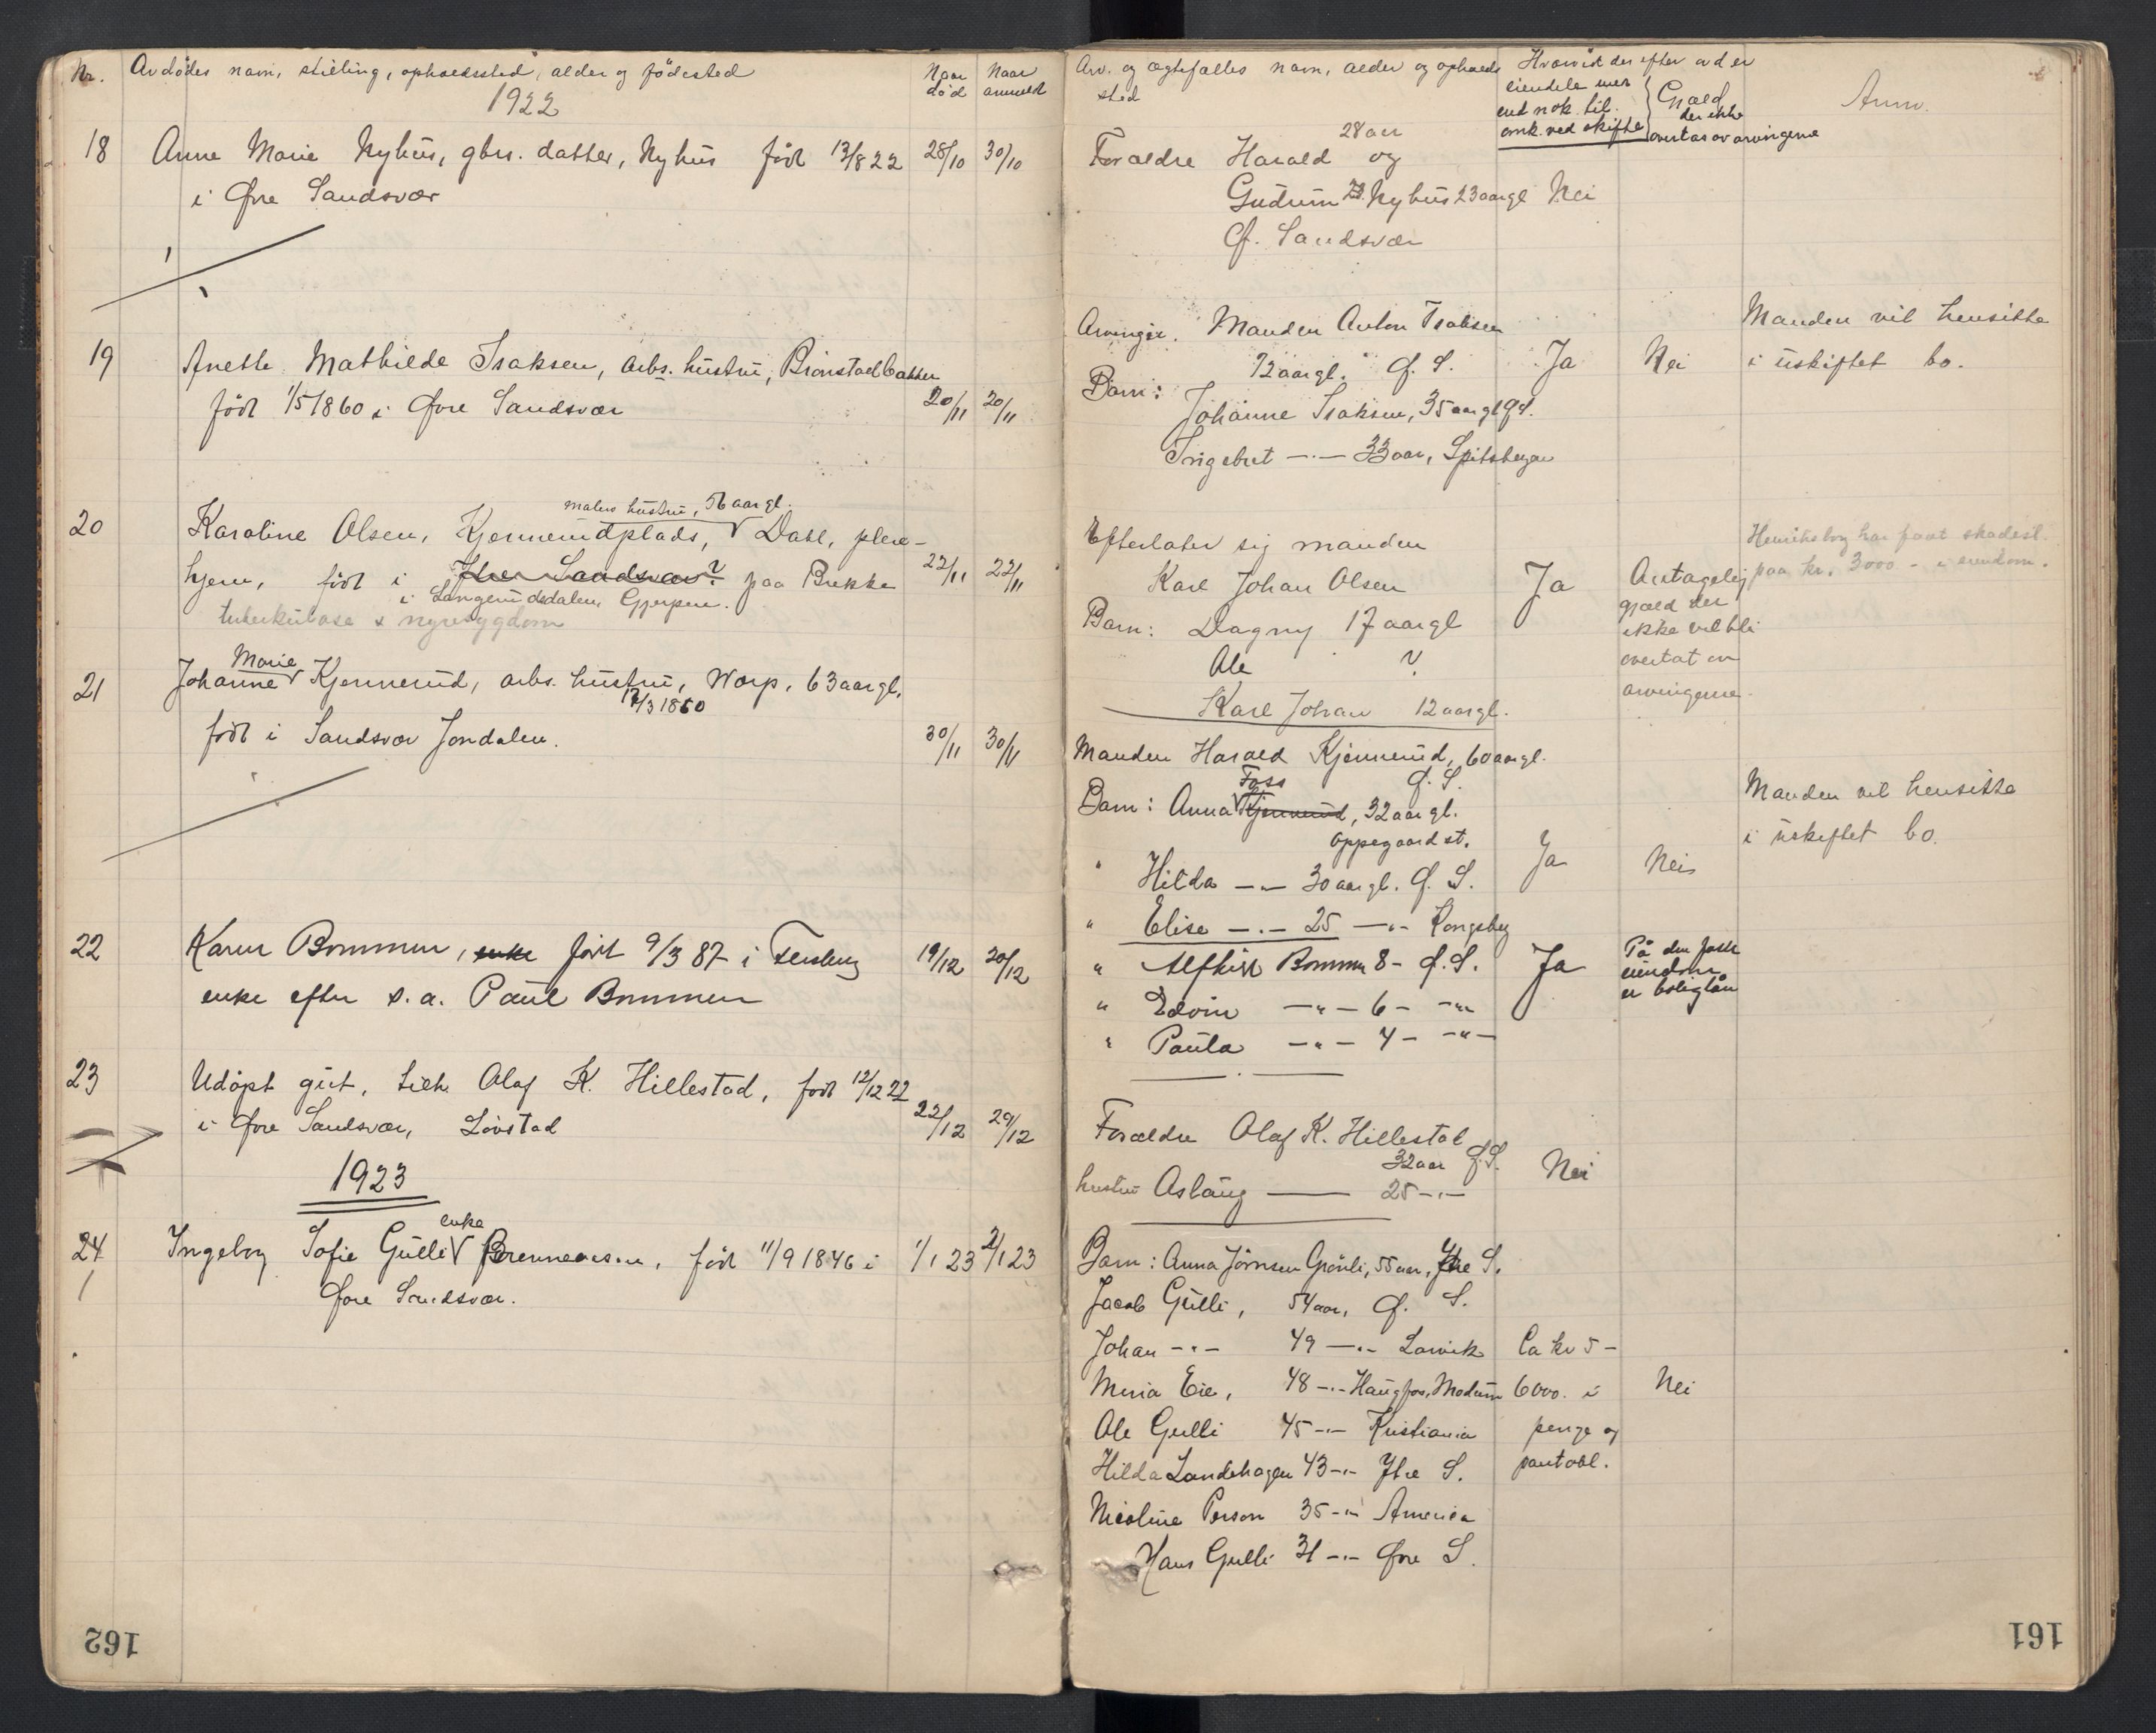 Nr. Avdödes navn, stilling, opholdssted, alder og födested Naar död Naar anmeldt
1922
18 Anne Marie Nyhus, gbr. datter, Nyhus född 13/8 22 28/10 30/10
i Øvre Sandsvær
19 Anette Mathilde Isaksen, arbs. hustru,
född 1/5 1860 i Øvre Sandsvær 20/11 20/11
malers hustru, 56 aar gl.
20 Karoline Olsen, Kjennerudplads, Dahl, pleie-
hjem, född i Ytre Sandsvær? paa Bekke 22/11 22/11
i Langerudsdalen Gjerpen.
tuberkulose & nyresygdom
Marie
21 Johanne Kjennerud, arbs. hustru, Worp, 63 aar gl.
17/3 1860
född i Sandsvær Jondalen. 30/11 30/11
22 Karen Bommen, enke född 9/3 87 i Flesberg 19/12 20/12
enke efter s. a. Paul Bommen
23 Udöpt gut, tilh. Olaf K. Hillestad, född 12/12 22
i Øvre Sandsvær, Lövstad 22/12 29/12
1923
enke
24 Ingeborg Sofie Gulli Brennemoen, född 11/9 1846 i 1/1 23 2/1 23
Øvre Sandsvær.
162
Arv. og ægtefælles navn, alder og opholds
sted
Hvorvidt der efter avd er
eiendele mer
end nok til
omk. ved skifte
Gjæld
der ikke
overtas av arvingerne
Anm.
28 aar
Forældre Harald og
Gudrun Nyhus 23 aar gl Nei
Ø. Sandsvær
Arvinger. Manden Anton Isaksen Manden vil hensitte
72 aar gl. Ø. S. Ja Nei i uskiftet bo.
Barn:
Johanne Isaksen, 35 aar gl Ø S.
Ingebret -"- 33 aar, Spitsbergen
Efterlater sig manden
Karl Johan Olsen Ja Antagelig paa kr. 3000 - i eiendom.
gjæld der
Barn: Dagny 17 aar gl ikke vil bli
Ole ? overtat av
Karl Johan 12 aar gl. arvingerne.
Manden Harald Kjennerud, 60 aar gl.
Foss Ø. S.
Barn: Anna Kjennerud, 32 aar gl. Manden vil hensitte
Oppegaard st. i uskiftet bo.
" Hilda -"- 30 aar gl. Ø. S. Ja Nei
" Elise -"- 25 -"- Kongsberg
" Alfhild Bommen 8 - Ø. S. Ja På den faste
eiendom
er boliglån
" Edvin -"- 6 - -"-
" Paula -"- 4 - -"-
Forældre Olaf K. Hillestad
32 aar Ø. S. Nei
hustru Aslaug — 25 -"-
Barn: Anna Jörnsen Grönli, 55 aar, Ytre S.
Jacob Gulli, 54 aar, Ø. S.
Johan -"- 49 -"- Larvik Ca kr 5 -
Maria Eie, 48 -"- Haugfos, Modum 6000. i Nei
Ole Gulli 45 -"- Kristiania penge og
Hilda Landehagen 43 -"- Ytre S. pantobl.
Nicoline Person 35 -"- America
Hans Gulli 31 -"- Øvre S.
161